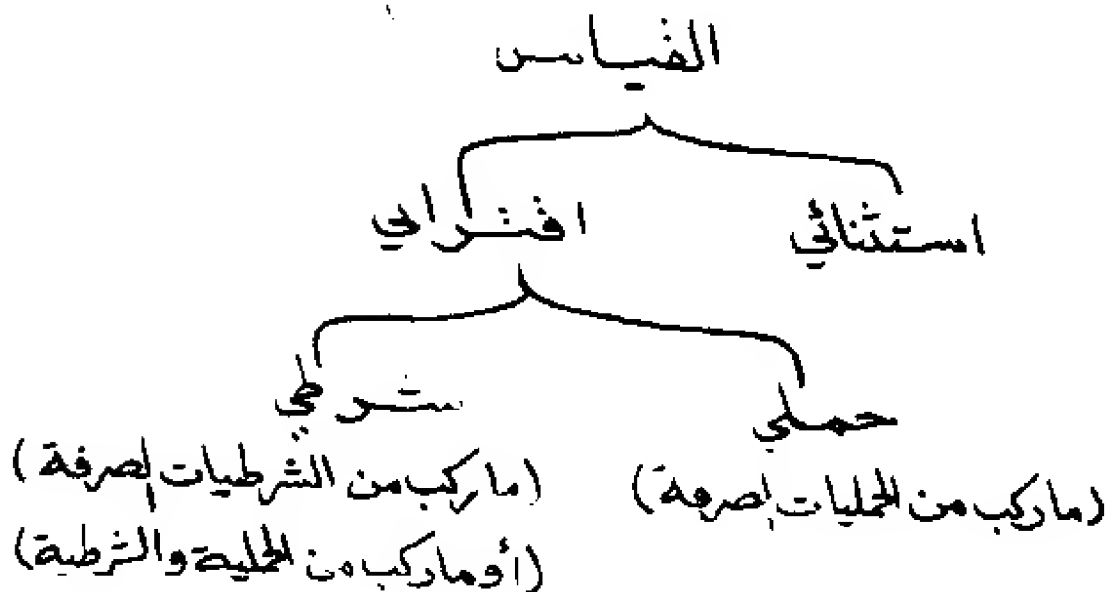 القياس
استثنائي
اقتراني
حملي
شرطي
(ما ركب من الحمليات الصرفة)
(ما ركب من الشرطيات الصرفة)
(أو ما ركب من الحملية والشرطية)